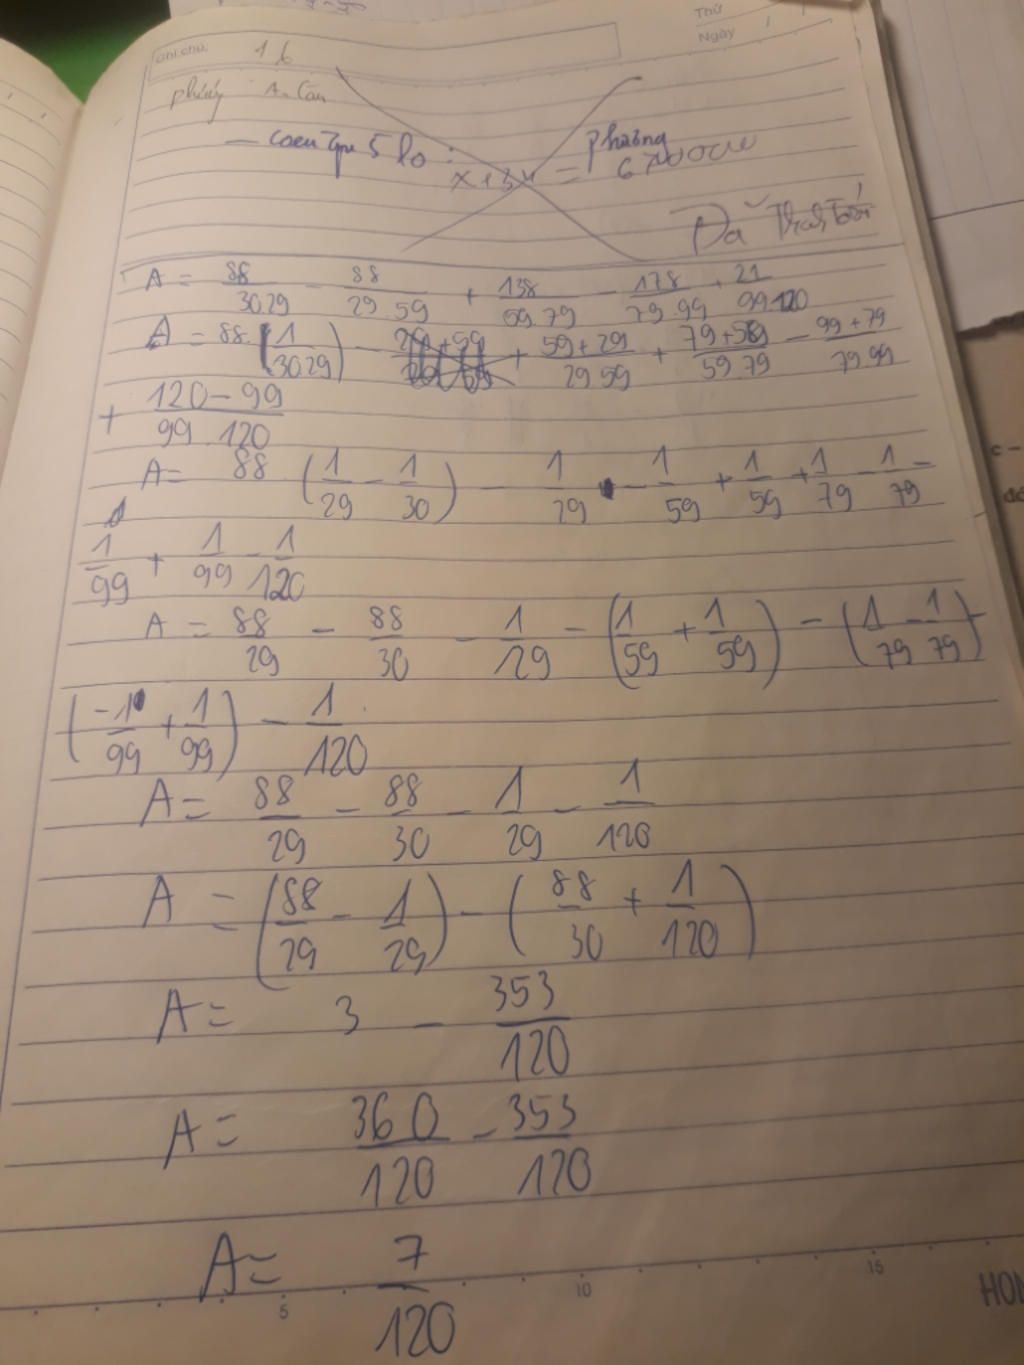 Thứ
Ngày
Ghi chú: 16
phòng A. Cần
5 lo : phòng
A = 88/30.29 - 88/29.59 + 138/59.79 - 178/79.99 + 21/99.120
A = 88.(1/30.29) - 59+29/29.59 + 79+59/59.79 - 99+79/79.99
+ 120-99/99.120
A = 88 (1/29 - 1/30) - 1/29 - 1/59 + 1/59 + 1/79 - 1/79 -
1/99 + 1/99 - 1/120
A = 88/29 - 88/30 - 1/29 - (1/59 + 1/59) - (1/79 - 1/79) -
(-1/99 + 1/99) - 1/120
A = 88/29 - 88/30 - 1/29 - 1/120
A = (88/29 - 1/29) - (88/30 + 1/120)
A = 3 - 353/120
A = 360/120 - 353/120
A = 7/120
5 10 15